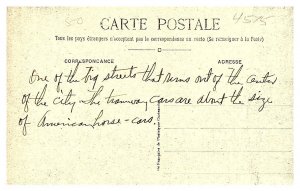 50
4585
CARTE POSTALE
Tous les pays étrangers n'acceptent pas la correspondance au recto (Se renseigner à la Poste)
CORRESPONDANCE
ADRESSE
One of the big streets that runs out of the center
of the city - the tramway cars are about the size
of American horse-cars.